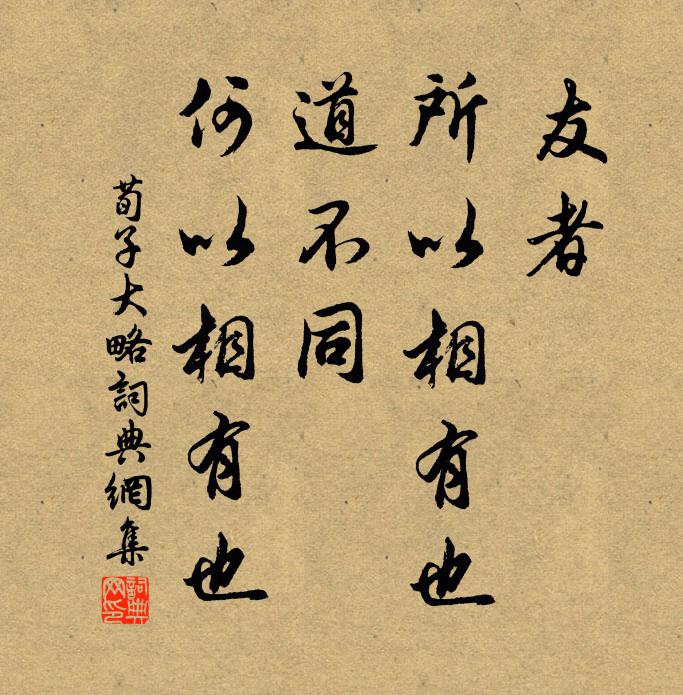 友者
所以相有也
道不同
何以相有也
荀子大略詞典網集
詞典网印